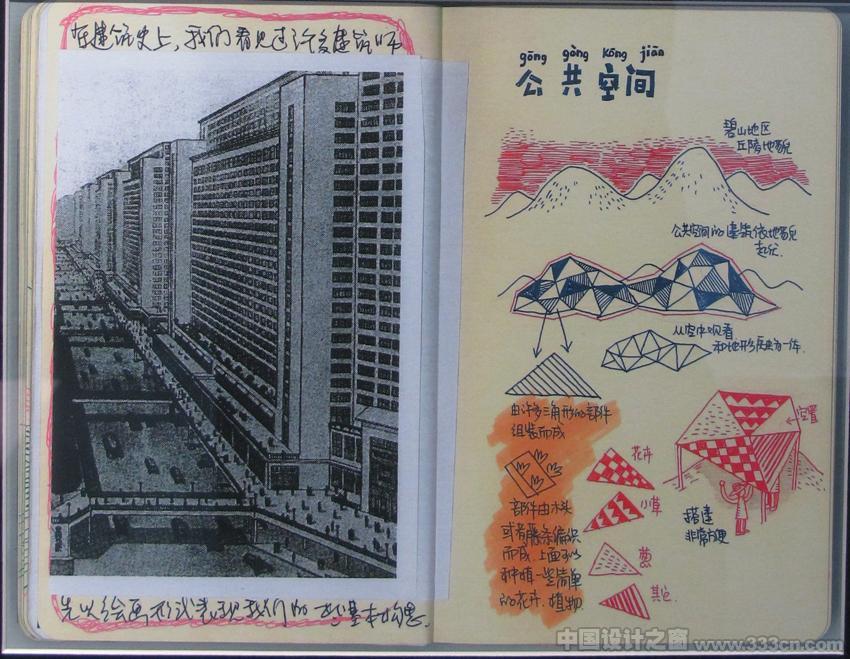 在建筑史上，我们看见过许多建筑师
先以绘画形式表现我们的一些基本构思.
gōng gòng kōng jiān
公共空间
碧山地区
丘陵地貌
公共空间的建筑依地貌
起伏.
从空中观看
和地形融为一体.
由许多三角形的部件
组装而成
部件由木头
或者藤条编织
而成.上面可以
种植一些简单
的花卉.植物.
花卉
小草
葱
其它.
空置
搭建
非常方便
中国设计之窗 www.333cn.com